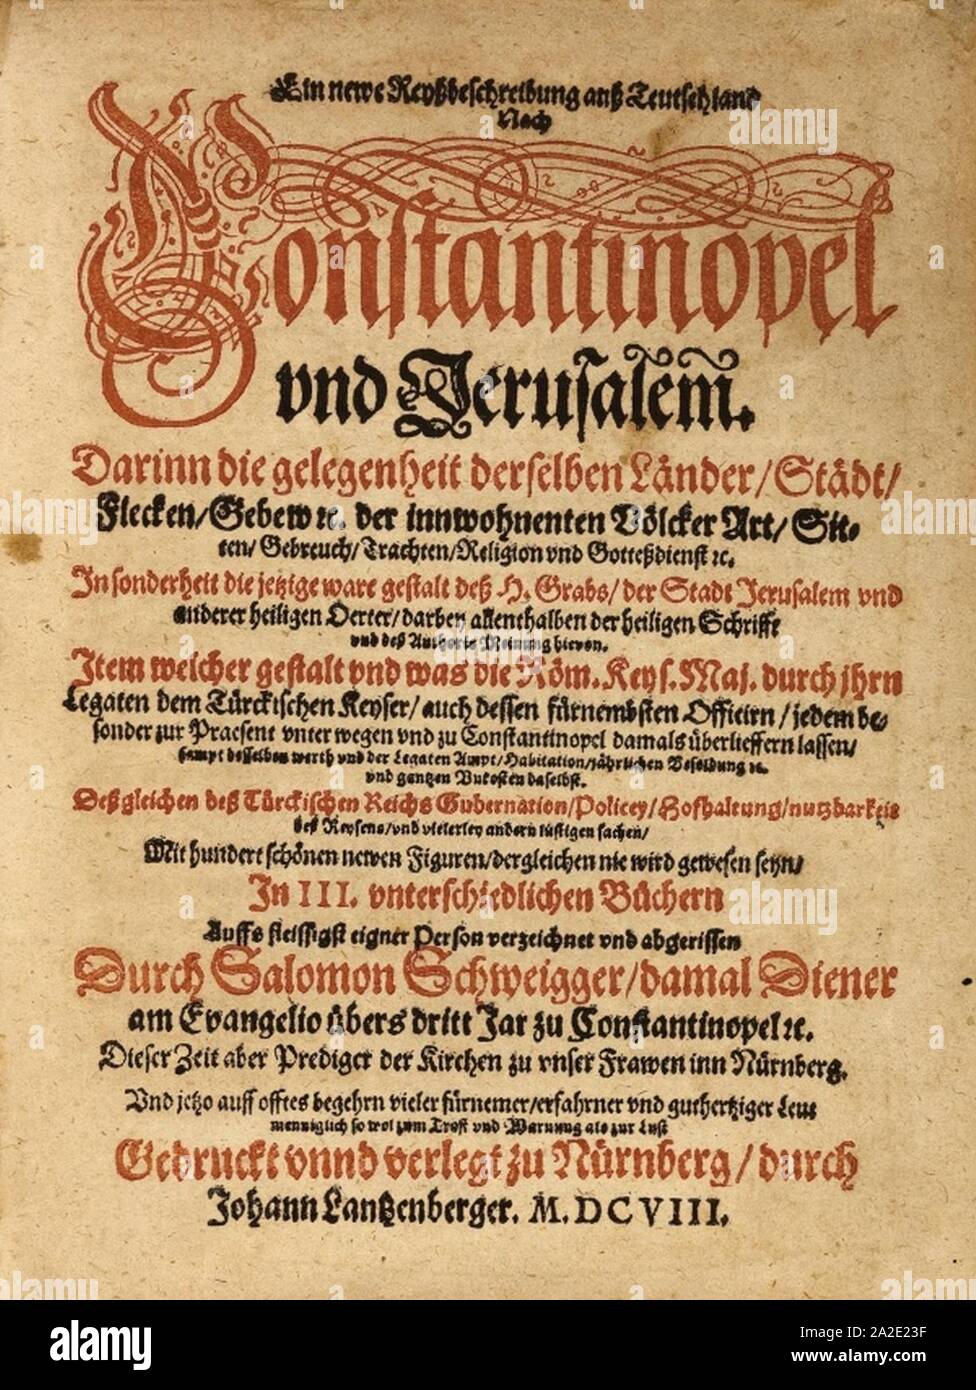 Ein newe Reyßbeschreibung auß Teutschland
Nach
Constantinopel
vnd Jerusalem.
Darinn die gelegenheit derselben Länder/Städt/
Flecken/Gebew ꝛc. der innwohnenten Völcker Art/Sit-
ten/Gebreuch/Trachten/Religion vnd Gotteßdienst ꝛc.
Insonderheit die jetzige ware gestalt deß H. Grabs/der Stadt Jerusalem vnd
anderer heiligen Oerter/darbey allenthalben der heiligen Schrifft
vnd deß Authoris Meinung hievon.
Item welcher gestalt vnd was die Röm. Keys. Maj. durch jhrn
Legaten dem Türckischen Keyser/auch dessen fürnembsten Officirn/jedem be-
sonder zur Praesent vnterwegen vnd zu Constantinopel damals überlieffern lassen/
sampt desselben werth vnd der Legaten Ampt/Habitation/jährlichen Besoldung ꝛc.
vnd gantzen Vnkosten daselbst.
Deßgleichen deß Türckischen Reichs Gubernation/Policey/Hofhaltung/nutzbarkeit
deß Reysens/vnd vielerley andern lustigen sachen/
Mit hundert schönen newen Figuren/dergleichen nie wird gewesen seyn/
In III. vnterschiedlichen Büchern
Auffs fleissigst eigner Person verzeichnet vnd abgerissen
Durch Salomon Schweigger/damal Diener
am Evangelio übers dritt Jar zu Constantinopel ꝛc.
Dieser Zeit aber Prediger der Kirchen zu vnser Frawen inn Nürnberg.
Vnd jetzo auff offtes begehrn vieler fürnemer/erfahrner vnd guthertziger Leut
menniglich so wol zum Trost vnd Warnung als zur Lust
Gedruckt vnnd verlegt zu Nürnberg/durch
Johann Lantzenberger. M. DCVIII.
alamy
Image ID: 2A2E23F
www.alamy.com